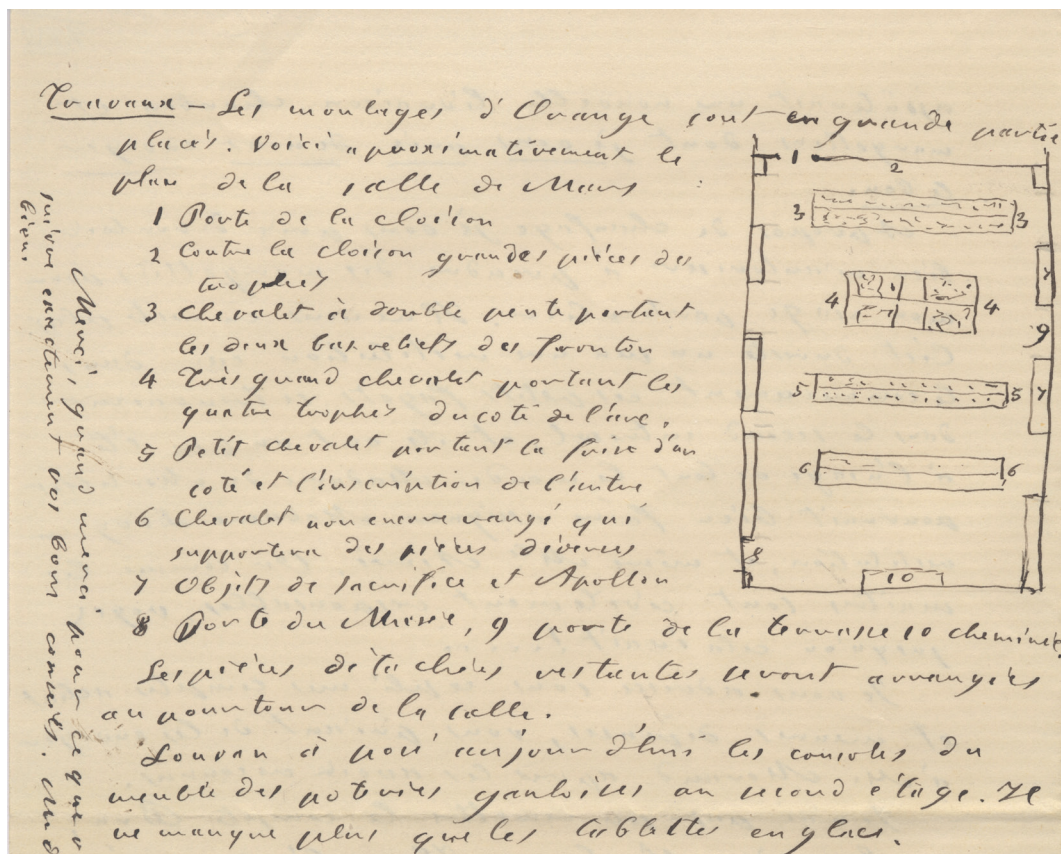 Travaux — Les moulages d'Orange sont en grande partie
placés. Voici aproximativement le
plan de la salle de Mars
1 Porte de la cloison
2 Contre la cloison grandes pièces des
trophées
3 Chevalet à double pente portant
les deux bas reliefs des fronton
4 Très grand chevalet portant les
quatre trophés du coté de l'arc.
5 Petit chevalet portant la frise d'un
coté et l'inscription de l'autre
6 Chevalet non encore rangé qui
supportera des pièces diverses
7 Objets de sacrifice et Apollon
8 Porte du Musée, 9 porte de la terrasse 10 cheminée.
Les pièces détachées restantes seront arrangées
au pourtour de la salle.
Louvau à posé aujourd'hui les consoles du
meuble des poteries gauloises au second étage. Il
ne manque plus que les tablettes en glace.
1
2
3 3
4 4
5 5
6 6
7
7
8
9
10
Merci, grand merci pour ce que
suivre exactement vos bons conseils.
bien.